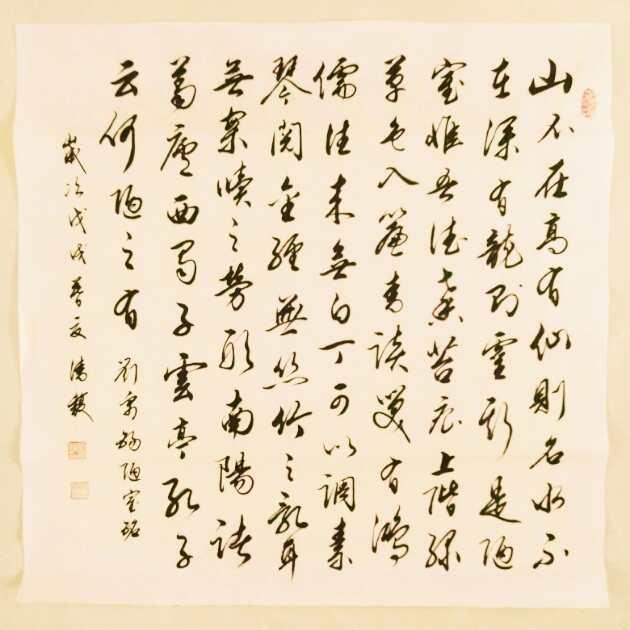 山不在高有仙則名水不
在深有龍則靈斯是陋
室惟吾德馨苔痕上階綠
草色入簾青談笑有鴻
儒往來無白丁可以調素
琴閱金經無絲竹之亂耳
無案牘之勞形南陽諸
葛廬西蜀子雲亭孔子
云何陋之有 劉禹錫陋室銘
歲次戊戌